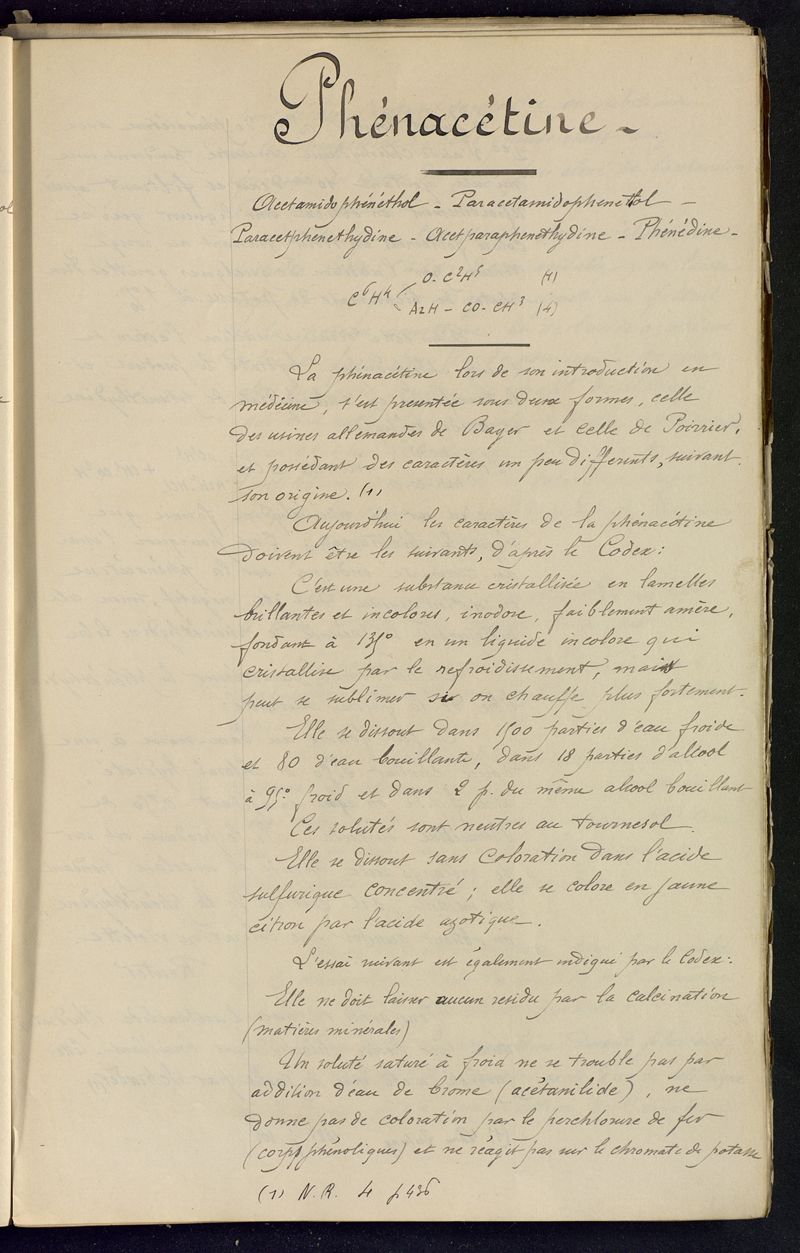 Phénacétine -
Acetamidophénéthol - Paracetamidophenethol -
Paracetphenethydine - Acetparaphenethydine - Phénédine -
O - C²H⁵ (1)
C⁶H⁴
AzH - CO - CH³ (4)
La phénacétine lors de son introduction en
médecine, s'est presentée sous deux formes, celle
des usines allemandes de Bayer et celle de Poirrier,
et possédant des caractères un peu differents, suivant
son origine. (1)
Aujourd'hui les caractères de la phénacétine
doivent être les suivants, d'après le Codex :
C'est une substance cristallisée en lamelles
brillantes et incolores, inodore, faiblement amère,
fondant à 135° en un liquide incolore qui
cristallise par le refroidissement, mais
peut se sublimer si on chauffe plus fortement.
Elle se dissout dans 1500 parties d'eau froide
et 80 d'eau bouillante, dans 18 parties d'alcool
à 95° froid et dans 2 p. du même alcool bouillant
Ces solutés sont neutres au tournesol.
Elle se dissout sans coloration dans l'acide
sulfurique concentré ; elle se colore en jaune
citron par l'acide azotique.
L'essai suivant est également indiqué par le Codex :
Elle ne doit laisser aucun residu par la calcination
(matières minérales)
Un soluté saturé à froid ne se trouble pas par
addition d'eau de brome (acétanilide), ne
donne pas de coloration par le perchlorure de fer
(corps phénoliques) et ne réagit pas sur le chromate de potasse
(1) N. R. 4 p 436